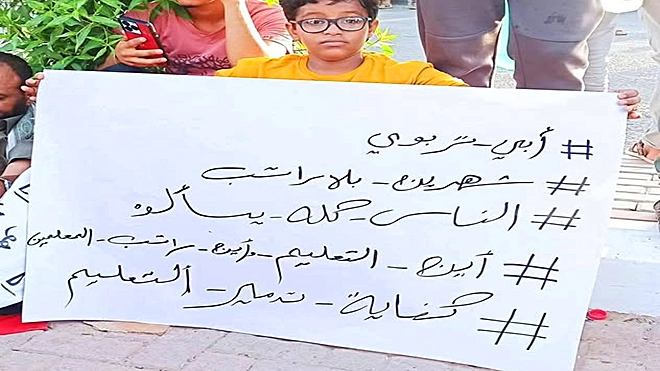 # أبي - تربوي
# شهرين - بلا راتب
# الناس - كله - يسألوه
# أين - التعليم - وأين - راتب - المعلمين
# كفاية - تدمير - التعليم